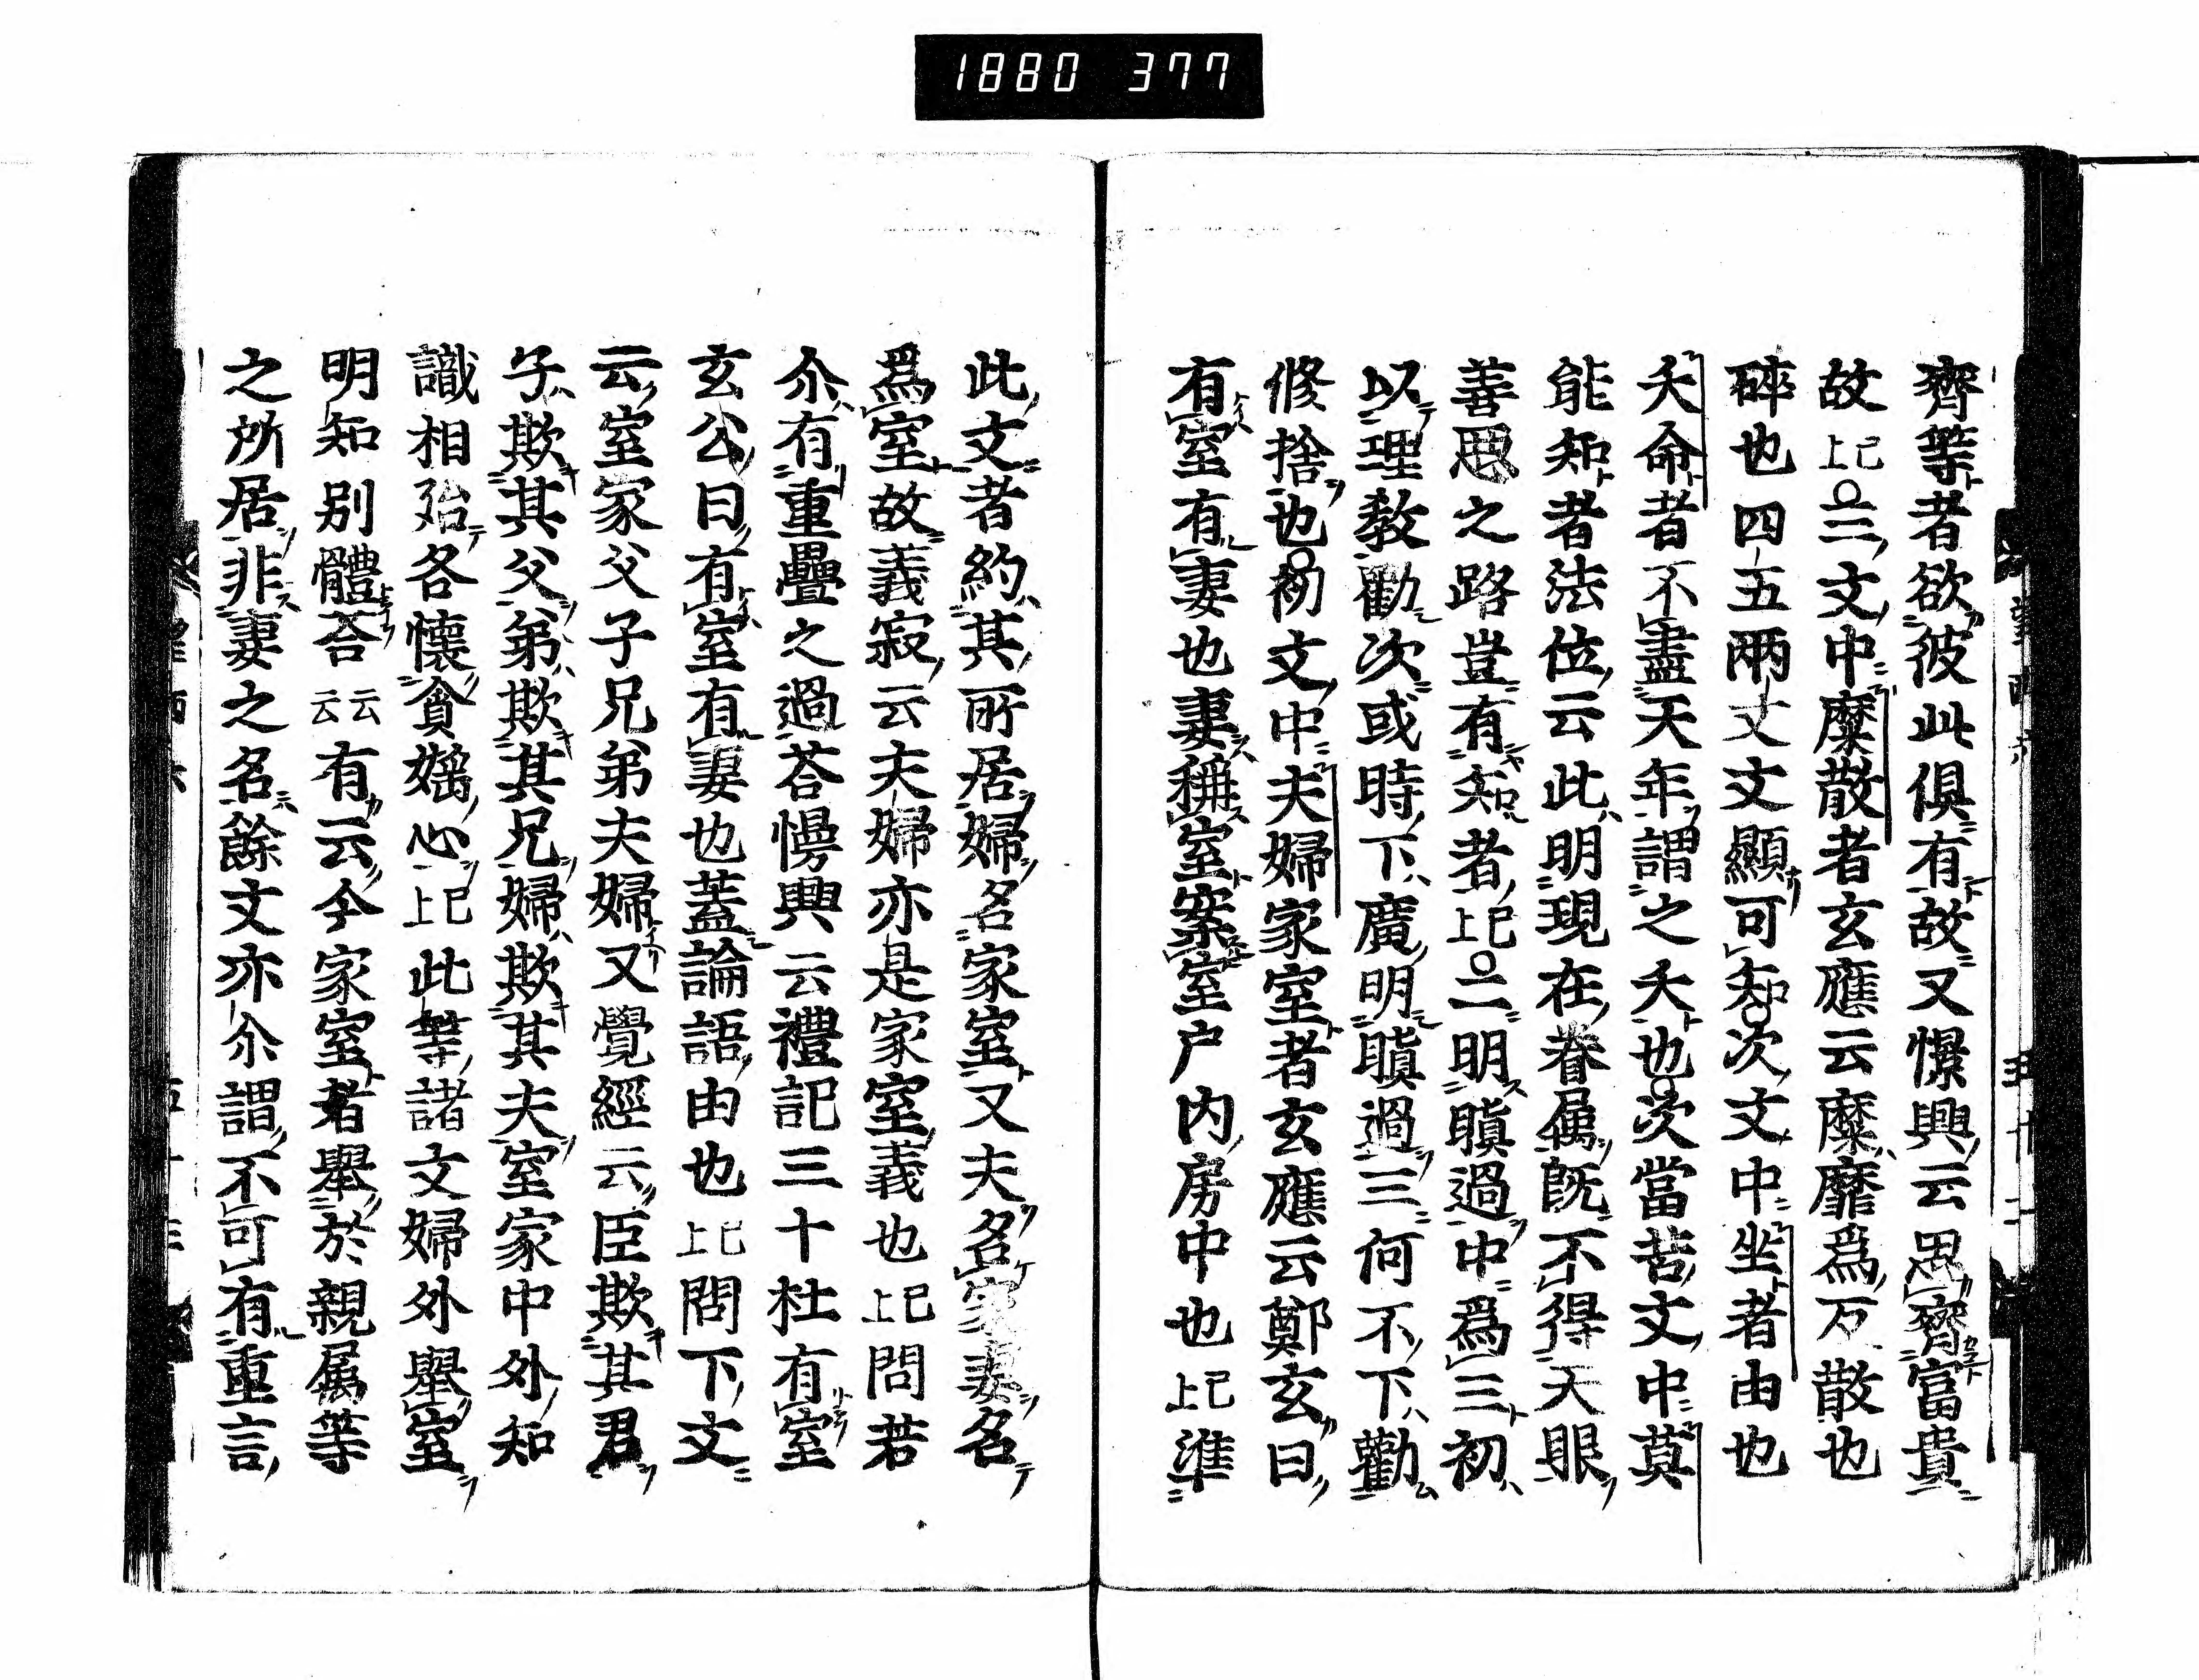 1880 377
齊等者欲彼此俱有故又憬興云思齊富貴
故已上三文中糜散者玄應云糜靡爲万散也
碎也四五兩丈文顯可知次文中坐者由也
夭命者不盡天年謂之夭也次當苦文中莫
能知者法位云此明現在眷属既不得天眼
善思之路豈有知者已上二明瞋過中爲三初
以理教勸次或時下廣明瞋過三何不下勸
修捨也初文中夫婦家室者玄應云鄭玄曰
有室有妻也妻稱室案室戸内房中也已上準
此文者約其所居婦名家室又夫名家妻名
爲室故義寂云夫婦亦是家室義也已上問若
尒有重疊之過荅憬興云禮記三十杜有室
玄公曰有室有妻也蓋論語由也已上問下文
云室家父子兄弟夫婦又覺經云臣欺其君
子欺其父弟欺其兄婦欺其夫室家中外知
識相殆各懷貪嫍心已上此等諸文婦外舉室
明知別體荅云云有云今家室者舉於親属等
之所居非妻之名餘文亦尒謂不可有重言